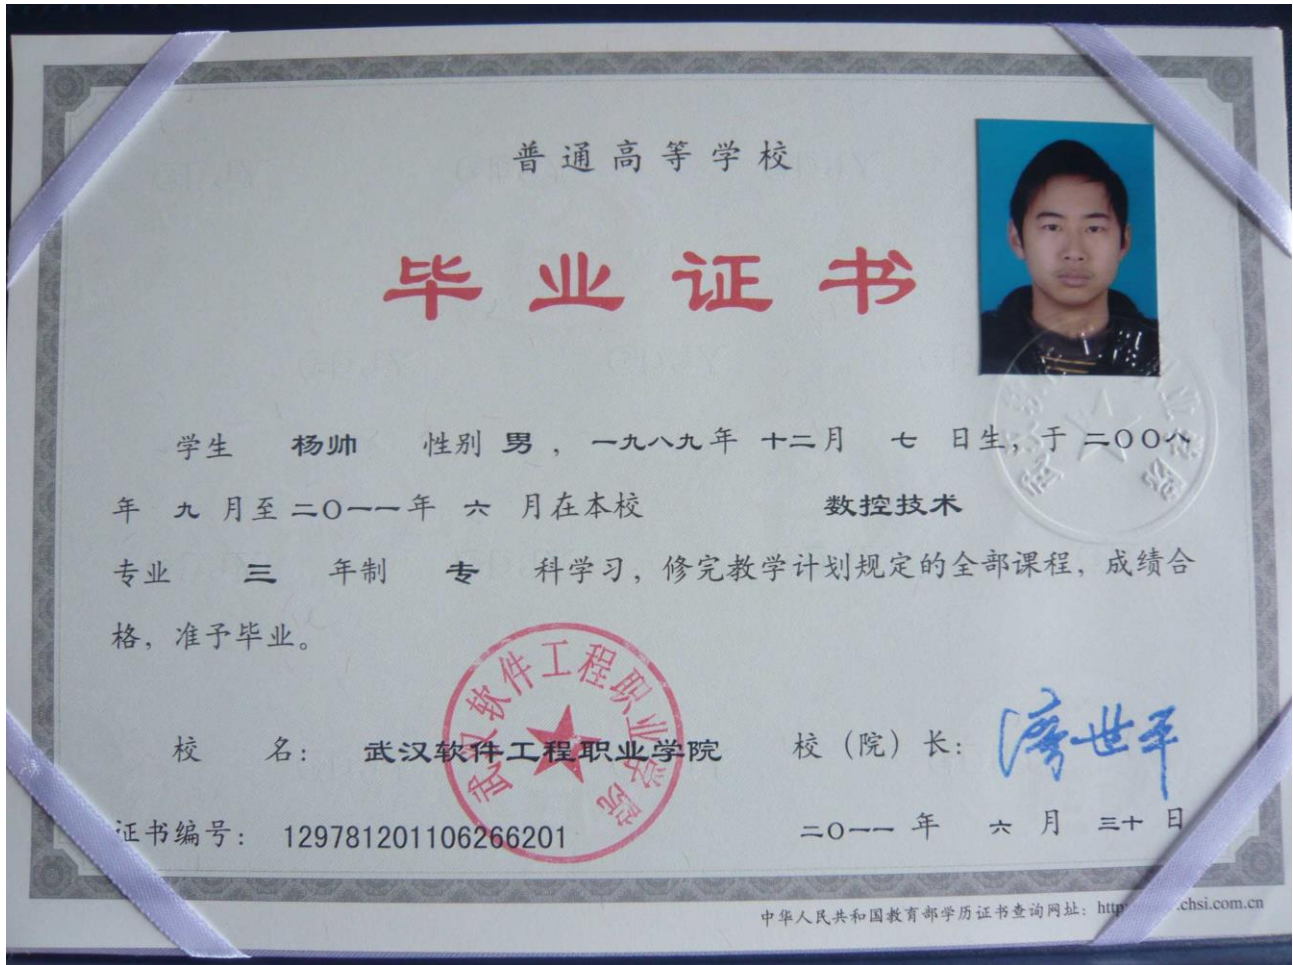 普通高等学校
毕业证书
学生 杨帅 性别 男，一九八九年 十二月 七 日生，于 二〇〇八
年 九 月至 二〇一一年 六 月在本校 数控技术
专业 三 年制 专 科学习，修完教学计划规定的全部课程，成绩合
格，准予毕业。
武汉软件工程职业学院
校 名： 武汉软件工程职业学院 校（院）长：
证书编号： 129781201106266201 二〇一一 年 六 月 三十 日
中华人民共和国教育部学历证书查询网址： http chsi.com.cn